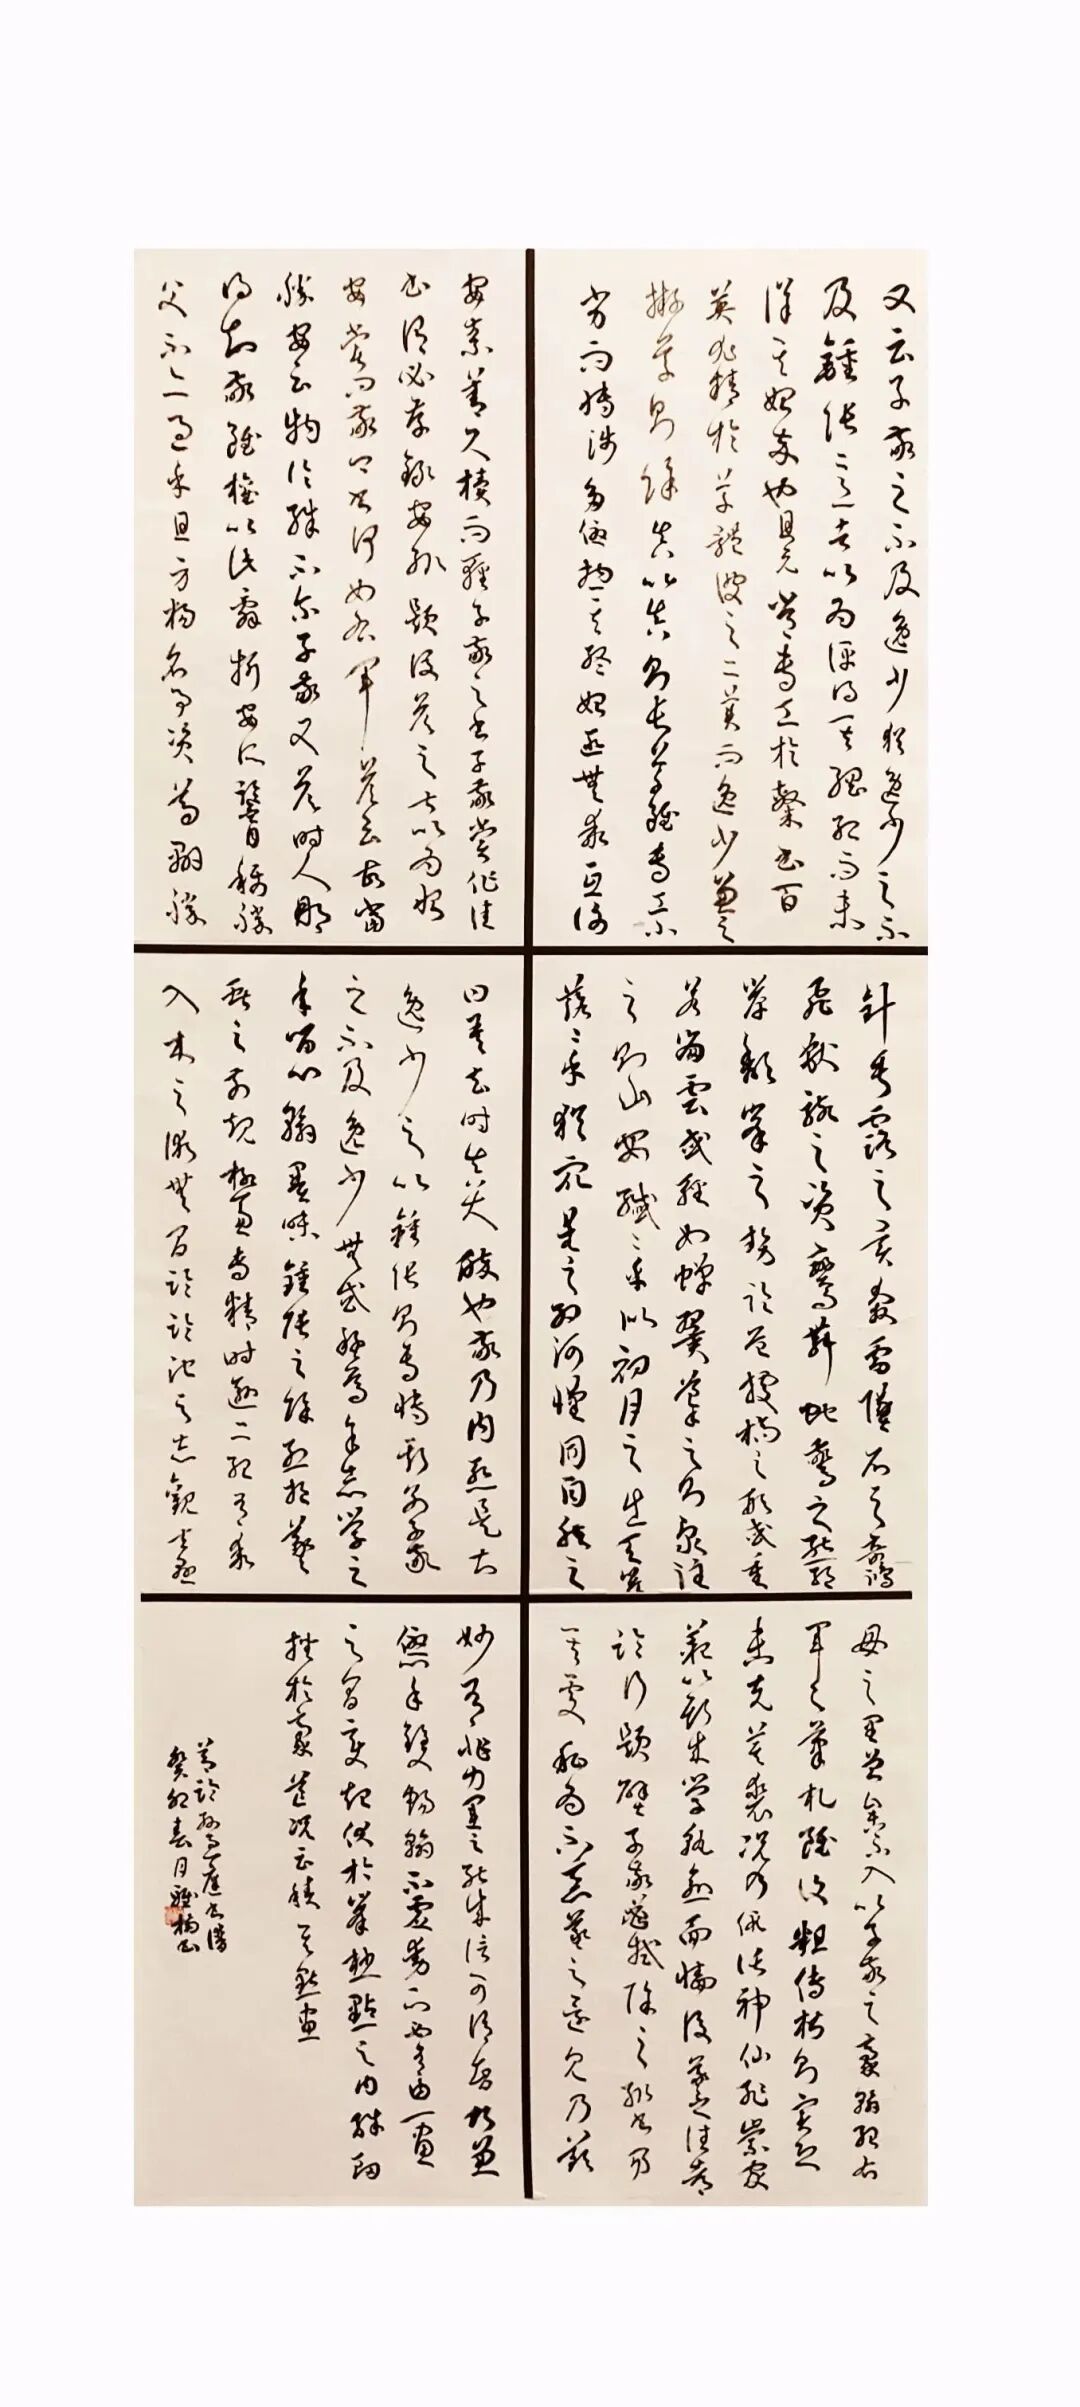 又云子敬之不及逸少猶逸少之不
及鍾張意者以為評得其綱紀而未
詳其始卒也且元常專工於隸書百
英尤精於草體彼之二美而逸少兼之
擬草則餘真比真則長草雖專工小
劣而博涉多優揔其終始匪無乖互謝
安素善尺牘而輕子敬之書子敬嘗作佳
書謂必存錄安輒題後答之甚以為恨
安嘗問敬卿書何如右軍答云故當
勝安云物論殊不尔子敬又答時人那
得知敬雖權以此辭折安所鑒自稱勝
父不亦過乎且立身揚名事資尊顯勝
母之里曾參不入以子敬之豪翰紹右
軍之筆札雖復粗傳楷則實恐
未克箕裘況乃假託神仙恥崇家
範以斯成學孰愈面牆後羲之往都
臨行題壁子敬密拭除之輒書易
其處私為不惡羲之還見乃歎
曰吾去時真大醉也敬乃內慙是知
逸少之比鍾張則專博斯別子敬
之不及逸少無或疑焉余志學之
年留心翰墨味鍾張之餘烈挹羲
獻之前規極慮專精時逾二紀有乖
入木之術無間臨池之志觀夫懸
針垂露之異奔雷墜石之奇鴻
飛獸駭之資鸞舞蛇驚之態絕
岸頹峯之勢臨危據槁之形或重
若崩雲或輕如蟬翼導之則泉注頓
之則山安纖〻乎似初月之出天崖
落〻乎猶眾星之列河漢同自然之
妙有非力運之能成信可謂智巧兼
優心手雙暢翰不虛動下必有由一畫
之間變起伏於峯杪一點之內殊衄
挫於豪芒況云積其點畫
節臨孫過庭書譜
癸卯春月